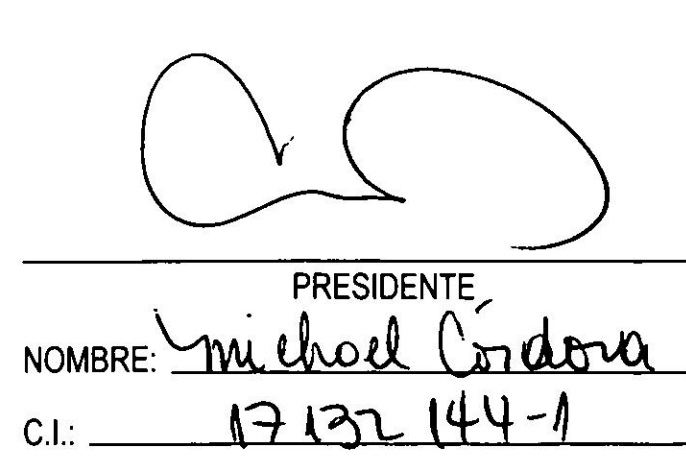 PRESIDENTE
NOMBRE: Michael Córdova
C.I.: 17132144-1